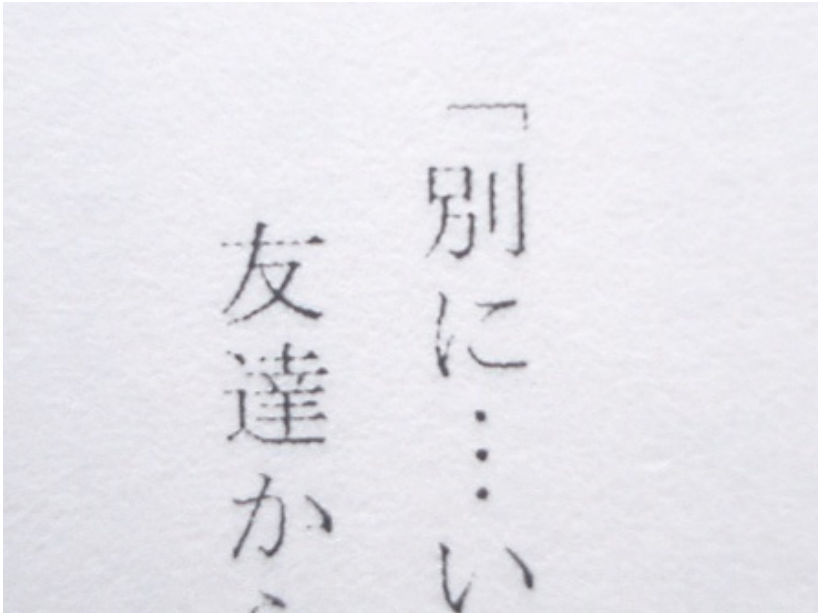 「別に…い
友達か